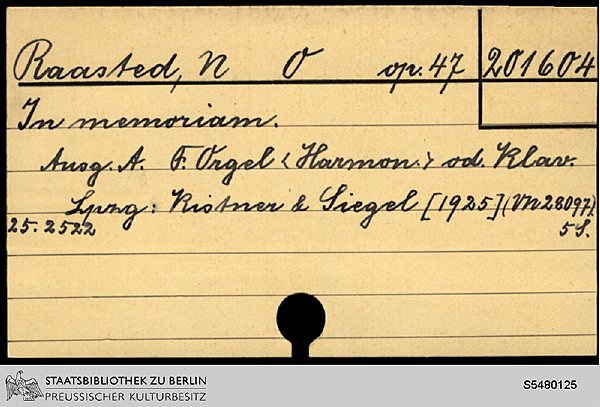 Raasted, N O op. 47 201604
In memoriam.
Ausg. A. F. Orgel <Harmon.> od. Klav.
Lpzg: Kistner & Siegel [1925] (VN 28097).
25. 2522 5 S.
STAATSBIBLIOTHEK ZU BERLIN
PREUSSISCHER KULTURBESITZ
S5480125